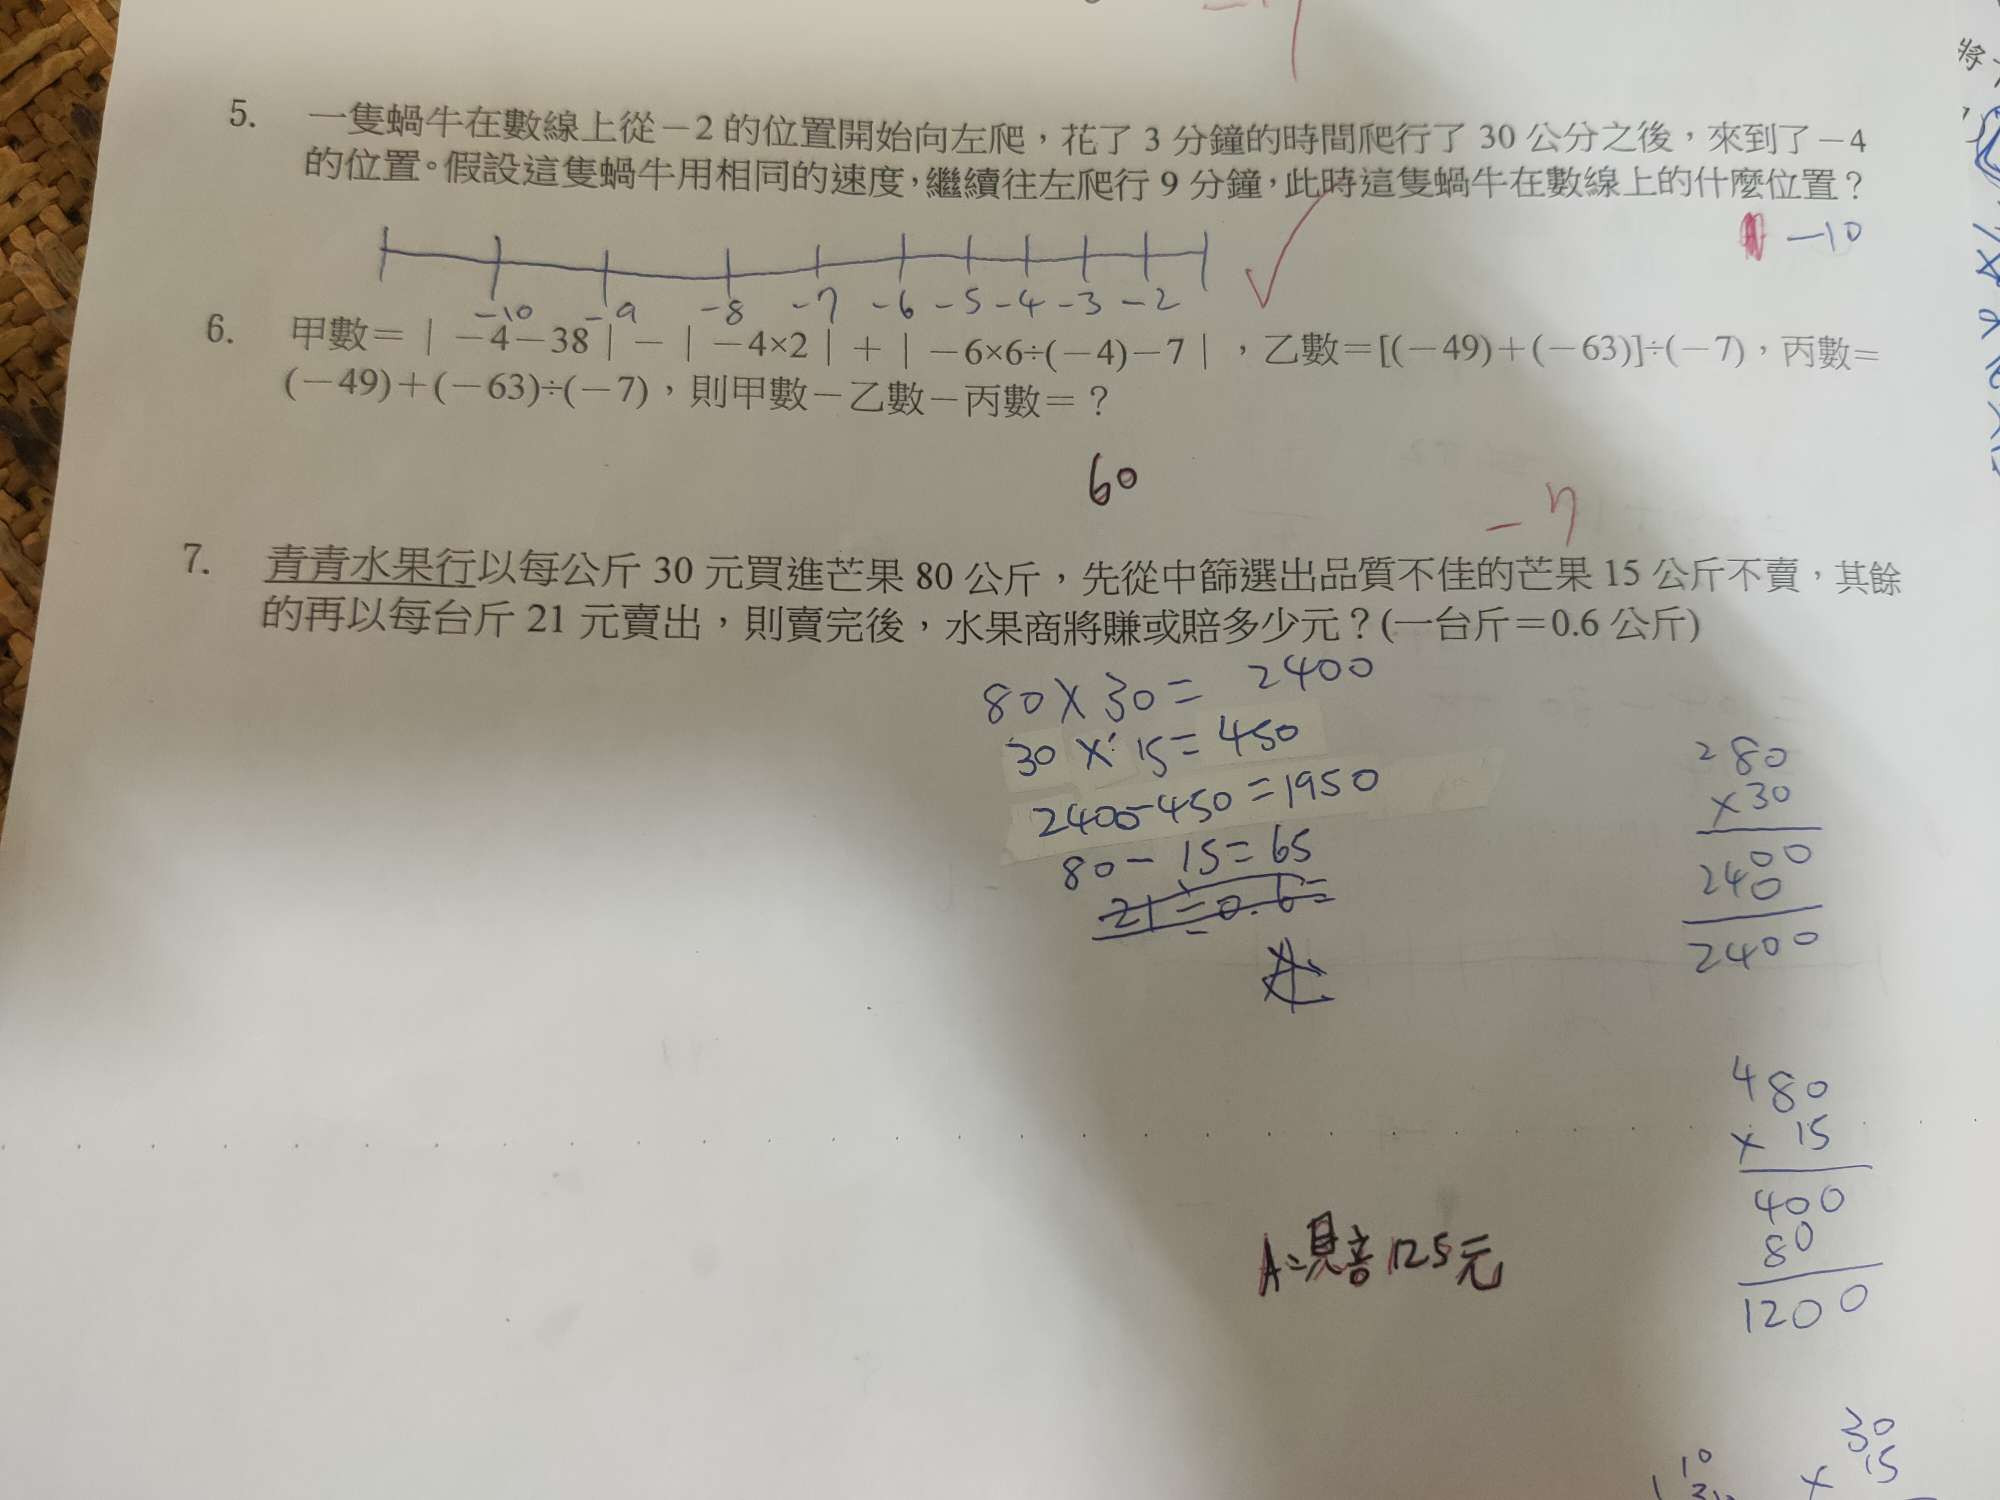 5. 一隻蝸牛在數線上從－2 的位置開始向左爬，花了 3 分鐘的時間爬行了 30 公分之後，來到了－4
的位置。假設這隻蝸牛用相同的速度，繼續往左爬行 9 分鐘，此時這隻蝸牛在數線上的什麼位置？
－10
－10 －9 －8 －7 －6 －5 －4 －3 －2
6. 甲數＝｜－4－38｜－｜－4×2｜＋｜－6×6÷(－4)－7｜，乙數＝[(－49)＋(－63)]÷(－7)，丙數＝
(－49)＋(－63)÷(－7)，則甲數－乙數－丙數＝？
60
－7
7. 青青水果行以每公斤 30 元買進芒果 80 公斤，先從中篩選出品質不佳的芒果 15 公斤不賣，其餘
的再以每台斤 21 元賣出，則賣完後，水果商將賺或賠多少元？(一台斤＝0.6 公斤)
80×30＝2400
30×15＝450
2400－450＝1950
80－15＝65
21÷0.6＝
280
×30
00
240
2400
480
×15
400
80
1200
A＝賠125元
30
15
將